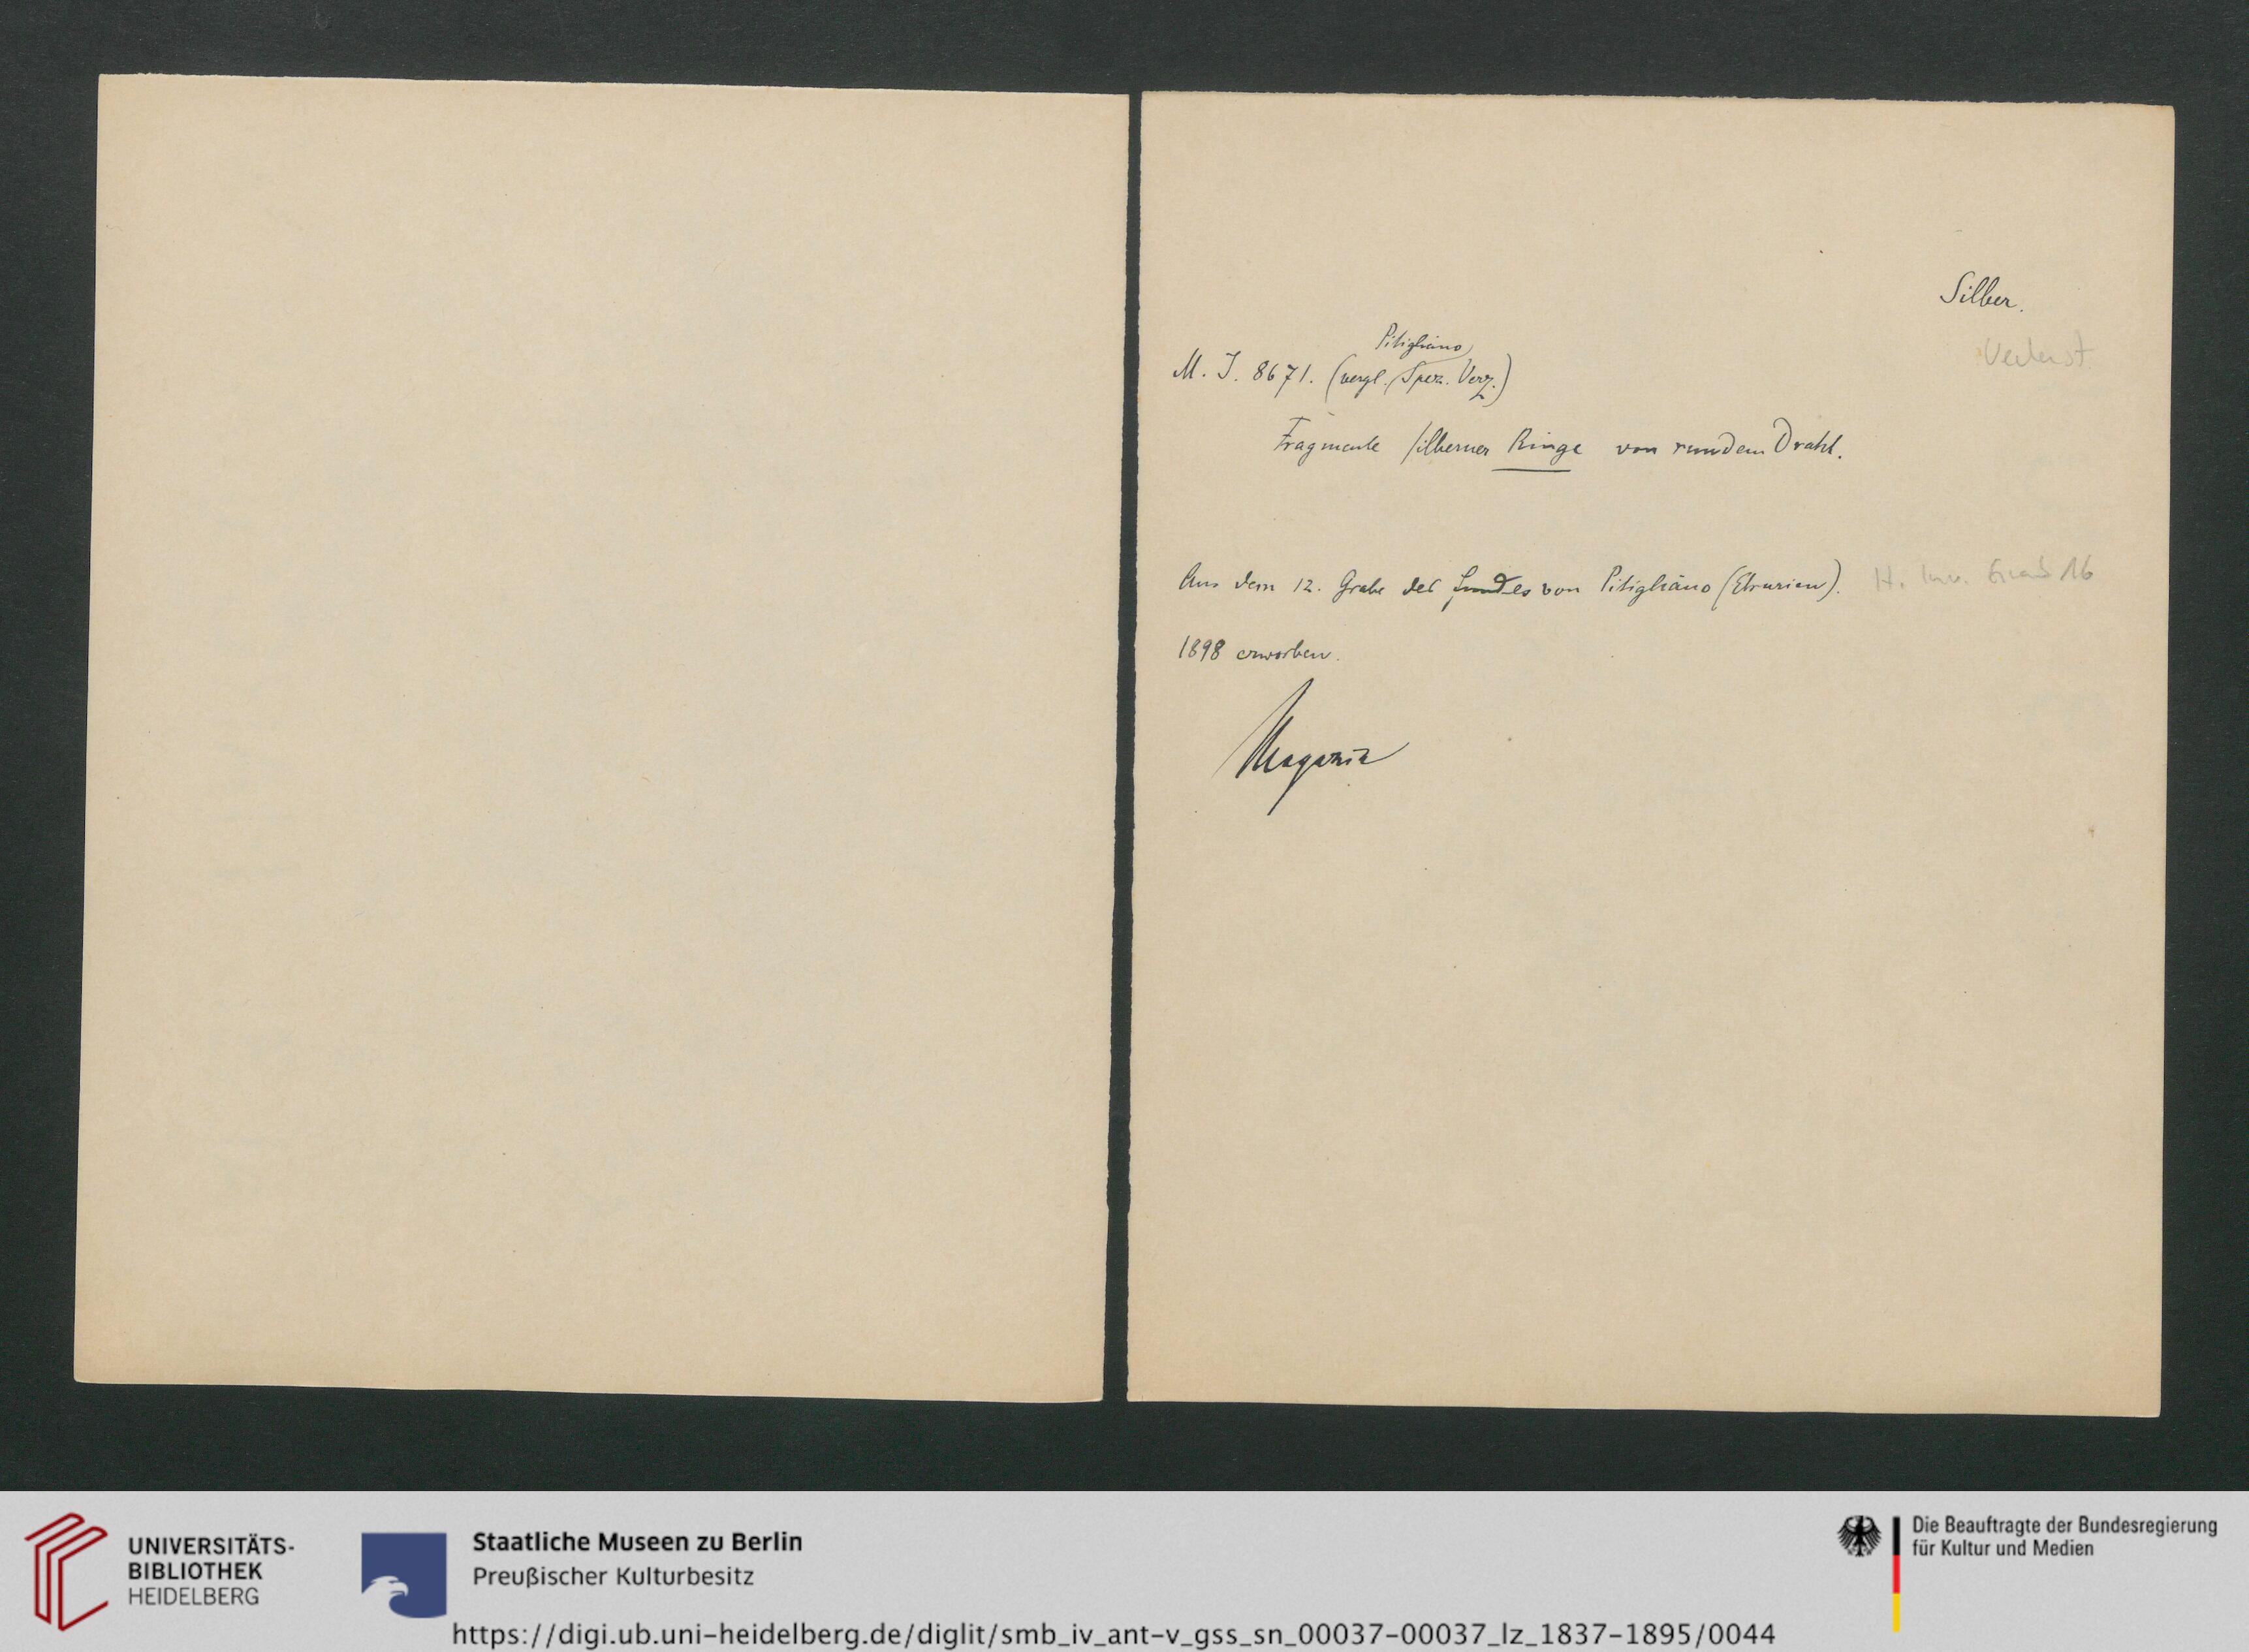 Silber.
Verlust
Pitigliano
M. J. 8671. (vergl. Spez. Verz.)
Fragmente silberner Ringe von rundem Draht.
Aus dem 12. Grabe des Fundes von Pitigliano (Etrurien). H. Inv. Grab 16
1898 erworben.
Magazin
UNIVERSITÄTS-
BIBLIOTHEK
HEIDELBERG
Staatliche Museen zu Berlin
Preußischer Kulturbesitz
Die Beauftragte der Bundesregierung
für Kultur und Medien
https://digi.ub.uni-heidelberg.de/diglit/smb_iv_ant-v_gss_sn_00037-00037_lz_1837-1895/0044